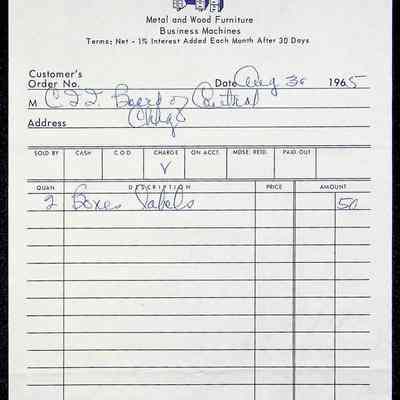 Metal and Wood Furniture
Business Machines
Terms; Net - 1% Interest Added Each Month After 30 Days
Customer's
Order No. Date Aug 30 1965
M C.I.I. Board of Control
Address
SOLD BY CASH C O D CHARGE ON ACCT. MDSE. RETD. PAID OUT
V
QUAN. DESCRIPTION PRICE AMOUNT
2 Boxes Labels 50